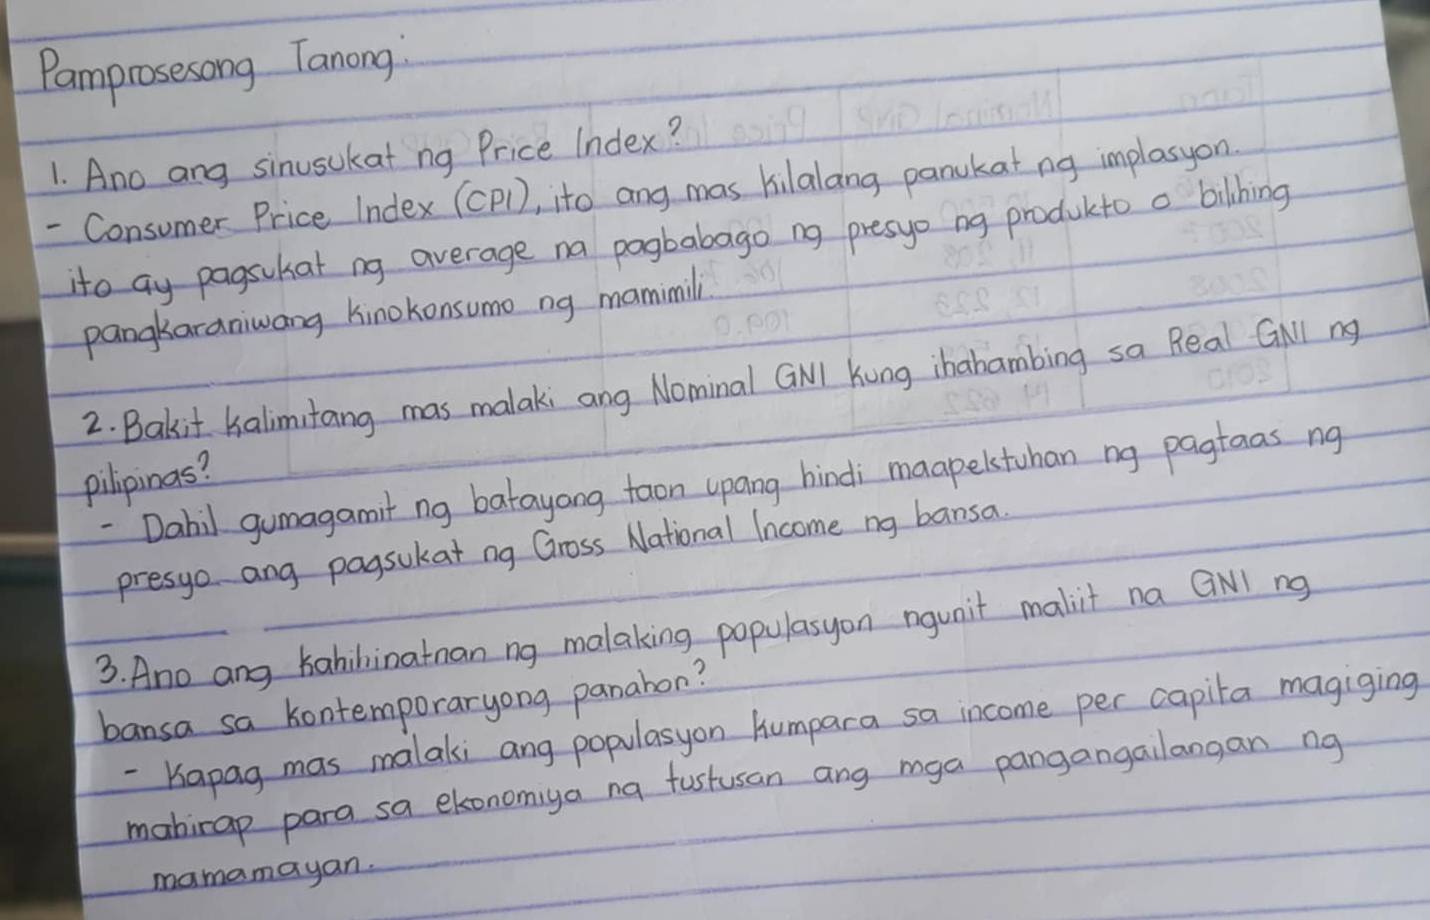 Pamprosesong Tanong:
1. Ano ang sinusukat ng Price Index?
- Consumer Price Index (CPI), ito ang mas kilalang panukat ng implasyon.
ito ay pagsukat ng average na pagbabago ng presyo ng produkto o bilihing
pangkaraniwang kinokonsumo ng mamimili.
2. Bakit kalimitang mas malaki ang Nominal GNI kung ihahambing sa Real GNI ng
pilipinas?
- Dahil gumagamit ng batayang taon upang hindi maapektuhan ng pagtaas ng
presyo ang pagsukat ng Gross National Income ng bansa.
3. Ano ang kahihinatnan ng malaking populasyon ngunit maliit na GNI ng
bansa sa kontemporaryong panahon?
- Kapag mas malaki ang populasyon kumpara sa income per capita magiging
mahirap para sa ekonomiya na tustusan ang mga pangangailangan ng
mamamayan.